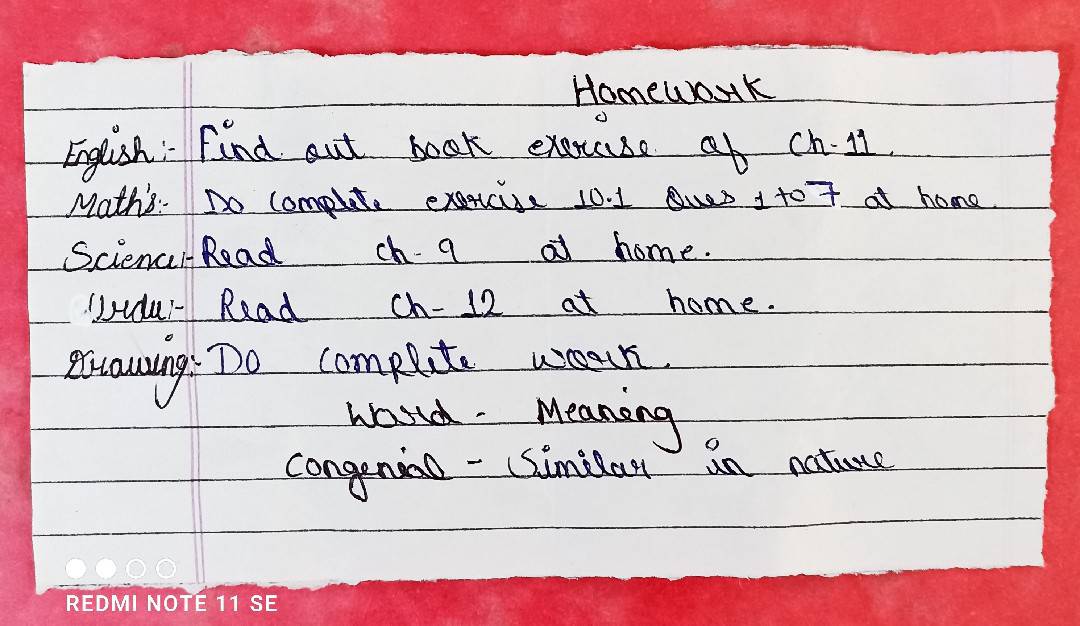 Homework
English:- Find out book exercise of Ch-11.
Math's:- Do complete exercise 10.1 Ques 1 to 7 at home.
Science:- Read ch-9 at home.
Urdu:- Read Ch-12 at home.
Drawing:- Do complete work.
Word - Meaning
Congenial - Similar in nature
REDMI NOTE 11 SE